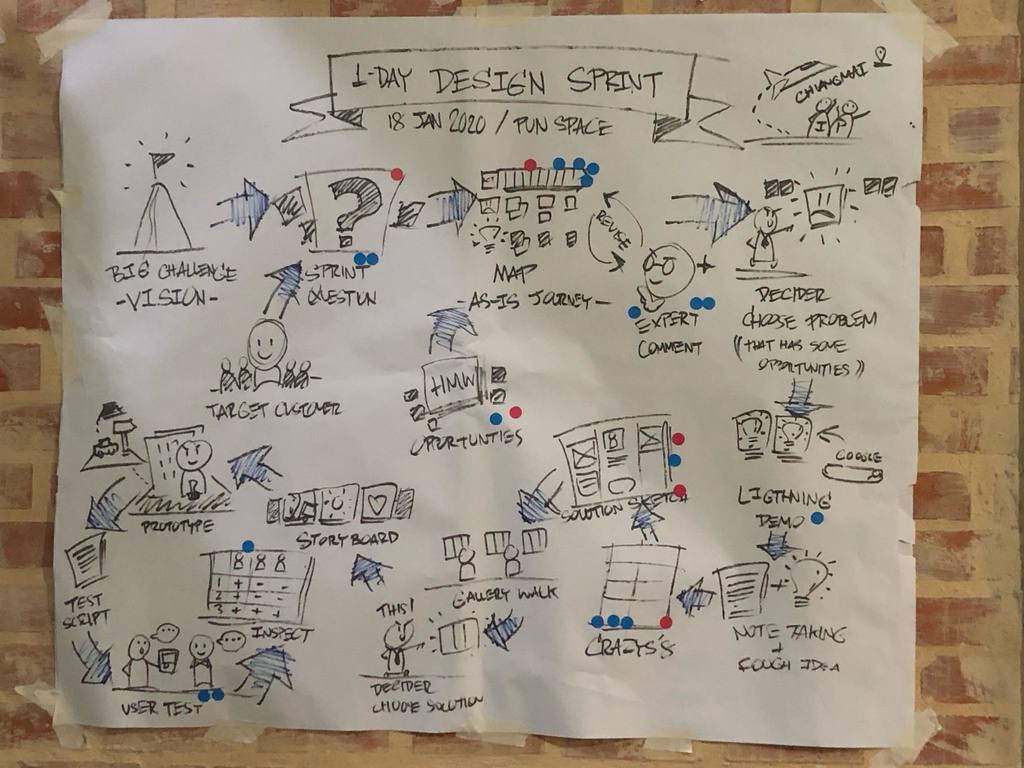 1-DAY DESIGN SPRINT
18 JAN 2020 / PUN SPACE
CHIANGMAI
I P
BIG CHALLENGE
- VISION -
?
SPRINT
QUESTION
MAP
- AS-IS JOURNEY -
REUSE
+
EXPERT
COMMENT
DECIDER
CHOOSE PROBLEM
(( THAT HAS SOME
OPPORTUNITIES ))
TARGET CUSTOMER
HMW
OPORTUNTIES
GOOGLE
LIGTHNING
DEMO
NOTE TAKING
+
ROUGH IDEA
CRAZY8'S
SOLUTION SKETCH
GALLERY WALK
THIS!
DECIDER
CHOOSE SOLUTION
STORYBOARD
PROTOTYPE
TEST
SCRIPT
USER TEST
1 + - -
2 + - -
3 + + +
INSPECT